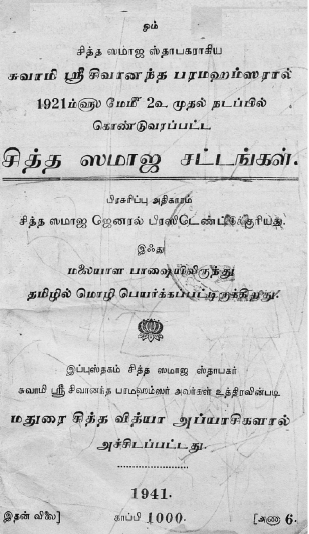 ஓம்
சித்த ஸமாஜ ஸ்தாபகராகிய
சுவாமி ஸ்ரீ சிவானந்த பரமஹம்ஸரால்
1921ம்௵ மேமீ 2௳ முதல் நடப்பில்
கொண்டுவரப்பட்ட
சித்த ஸமாஜ சட்டங்கள்.
பிரசுரிப்பு அதிகாரம்
சித்த ஸமாஜ ஜெனரல் பிரஸிடெண்ட்டிக்குரியது.
இஃது
மலையாள பாஷையிலிருந்து
தமிழில் மொழி பெயர்க்கப்பட்டிருக்கிறது.
இப்புஸ்தகம் சித்த ஸமாஜ ஸ்தாபகர்
சுவாமி ஸ்ரீ சிவானந்த பரமஹம்ஸர் அவர்கள் உத்திரவின்படி
மதுரை சித்த வித்யா அப்யாசிகளால்
அச்சிடப்பட்டது.
1941.
இதன் விலை] காப்பி 1000. [அணு 6.